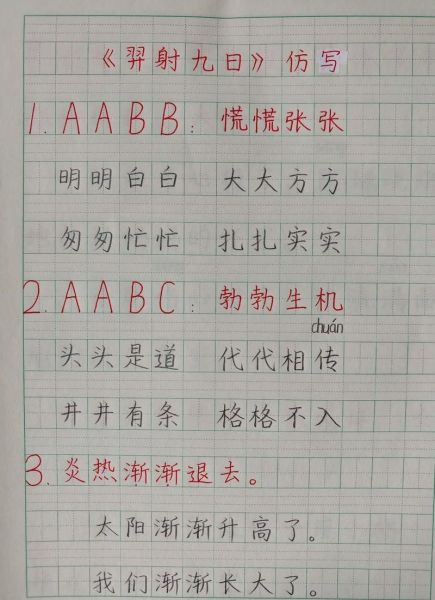 《羿射九日》仿写
1. AABB：慌慌张张
明明白白 大大方方
匆匆忙忙 扎扎实实
2. AABC：勃勃生机
chuán
头头是道 代代相传
井井有条 格格不入
3. 炎热渐渐退去。
太阳渐渐升高了。
我们渐渐长大了。